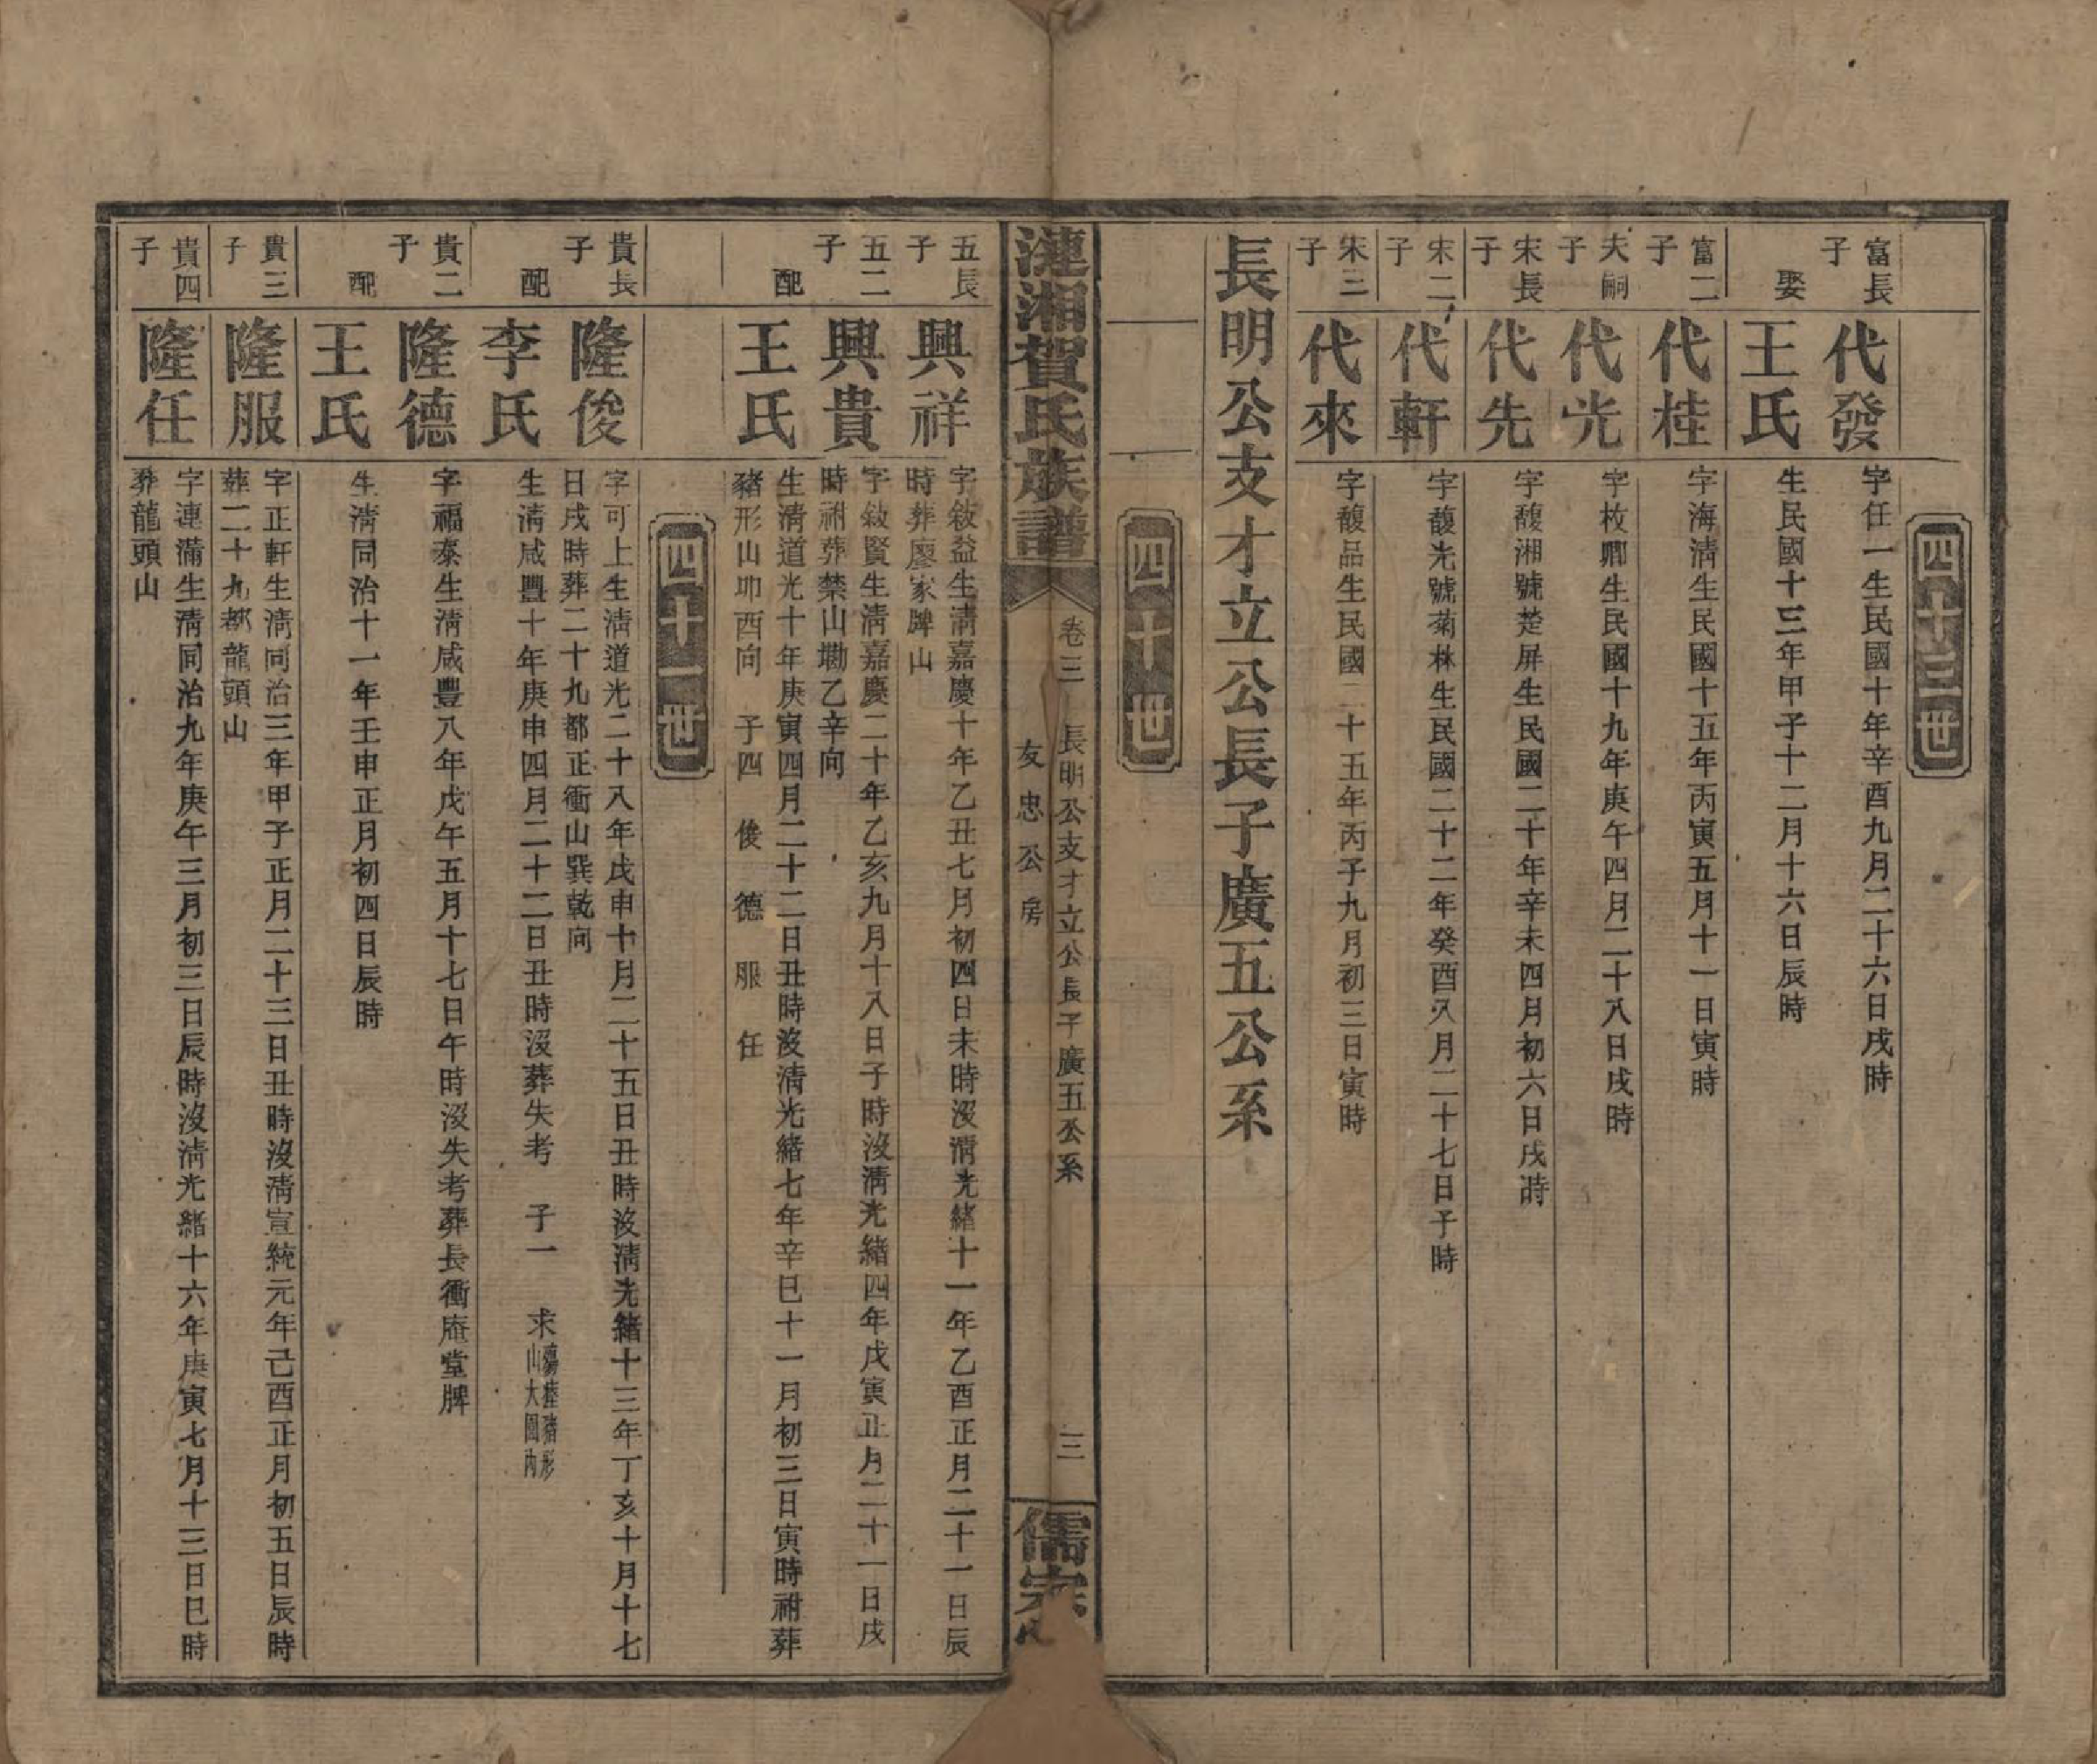 四十三世
富長子
代發
字任一生民國十年辛酉九月二十六日戌時
娶
王氏
生民國十三年甲子十二月十六日辰時
富二子
代桂
字海清生民國十五年丙寅五月十一日寅時
夫嗣子
代光
字枚卿生民國十九年庚午四月二十八日戌時
宋長子
代先
字馥湘號楚屏生民國二十年辛未四月初六日戌時
宋二子
代軒
字馥光號菊林生民國二十二年癸酉八月二十七日子時
宋三子
代來
字馥品生民國二十五年丙子九月初三日寅時
長明公支才立公長子廣五公系
四十世
漣湘賀氏族譜
卷三
長明公支才立公長子廣五公系
友忠公房
三
儒宗
五長子
興祥
字敘益生清嘉慶十年乙丑七月初四日未時沒清光緒十一年乙酉正月二十一日辰
時葬廖家牌山
五二子
興貴
字敘賢生清嘉慶二十年乙亥九月十八日子時沒清光緒四年戊寅正月二十一日戌
時祔葬禁山墈乙辛向
配
王氏
生清道光十年庚寅四月二十二日丑時沒清光緒七年辛巳十一月初三日寅時祔葬
豬形山卯酉向 子四 俊 德 服 任
四十一世
貴長子
隆俊
字可上生清道光二十八年戊申十月二十五日丑時沒清光緒十三年丁亥十月十七
日戌時葬二十九都正衝山巽乾向
配
李氏
生清咸豐十年庚申四月二十二日丑時沒葬失考 子一 求 殤 豬形
山大圍內
貴二子
隆德
字福泰生清咸豐八年戊午五月十七日午時沒失考葬長衝庵堂牌
配
王氏
生清同治十一年壬申正月初四日辰時
貴三子
隆服
字正軒生清同治三年甲子正月二十三日丑時沒清宣統元年己酉正月初五日辰時
葬二十九都龍頭山
貴四子
隆任
字連滿生清同治九年庚午三月初三日辰時沒清光緒十六年庚寅七月十三日巳時
葬龍頭山